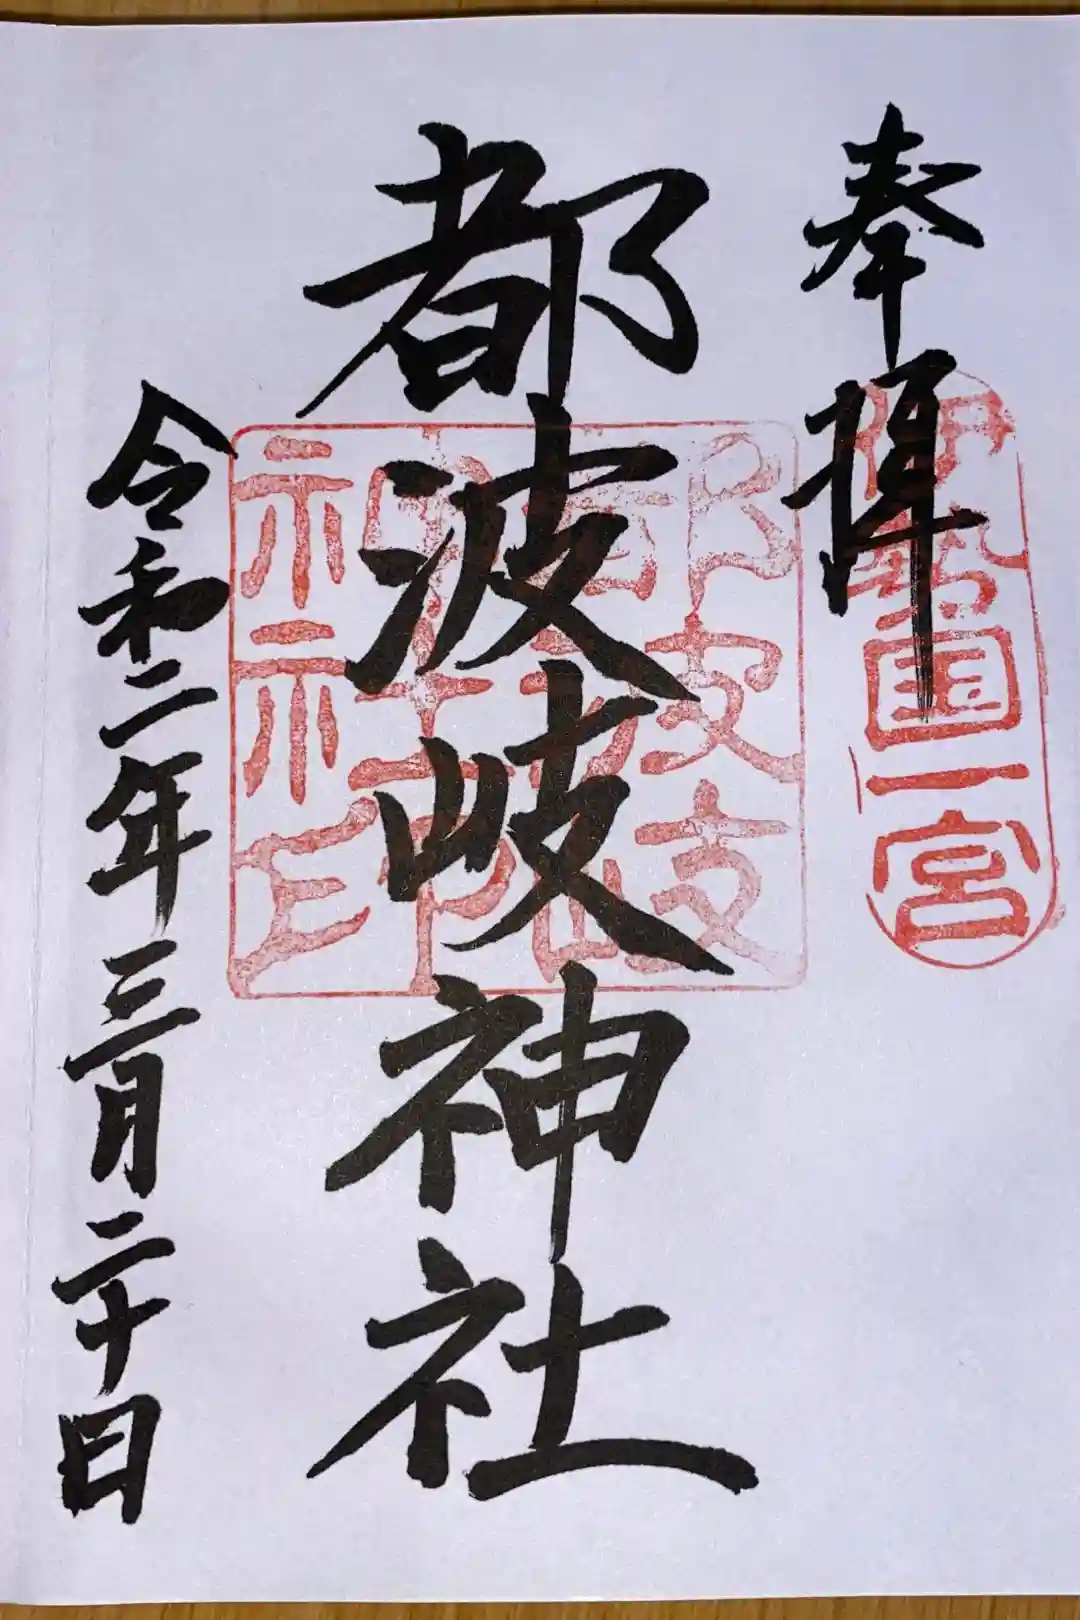 奉拝
伊勢国一宮
都波岐神社
都波岐神社印
令和二年三月二十日